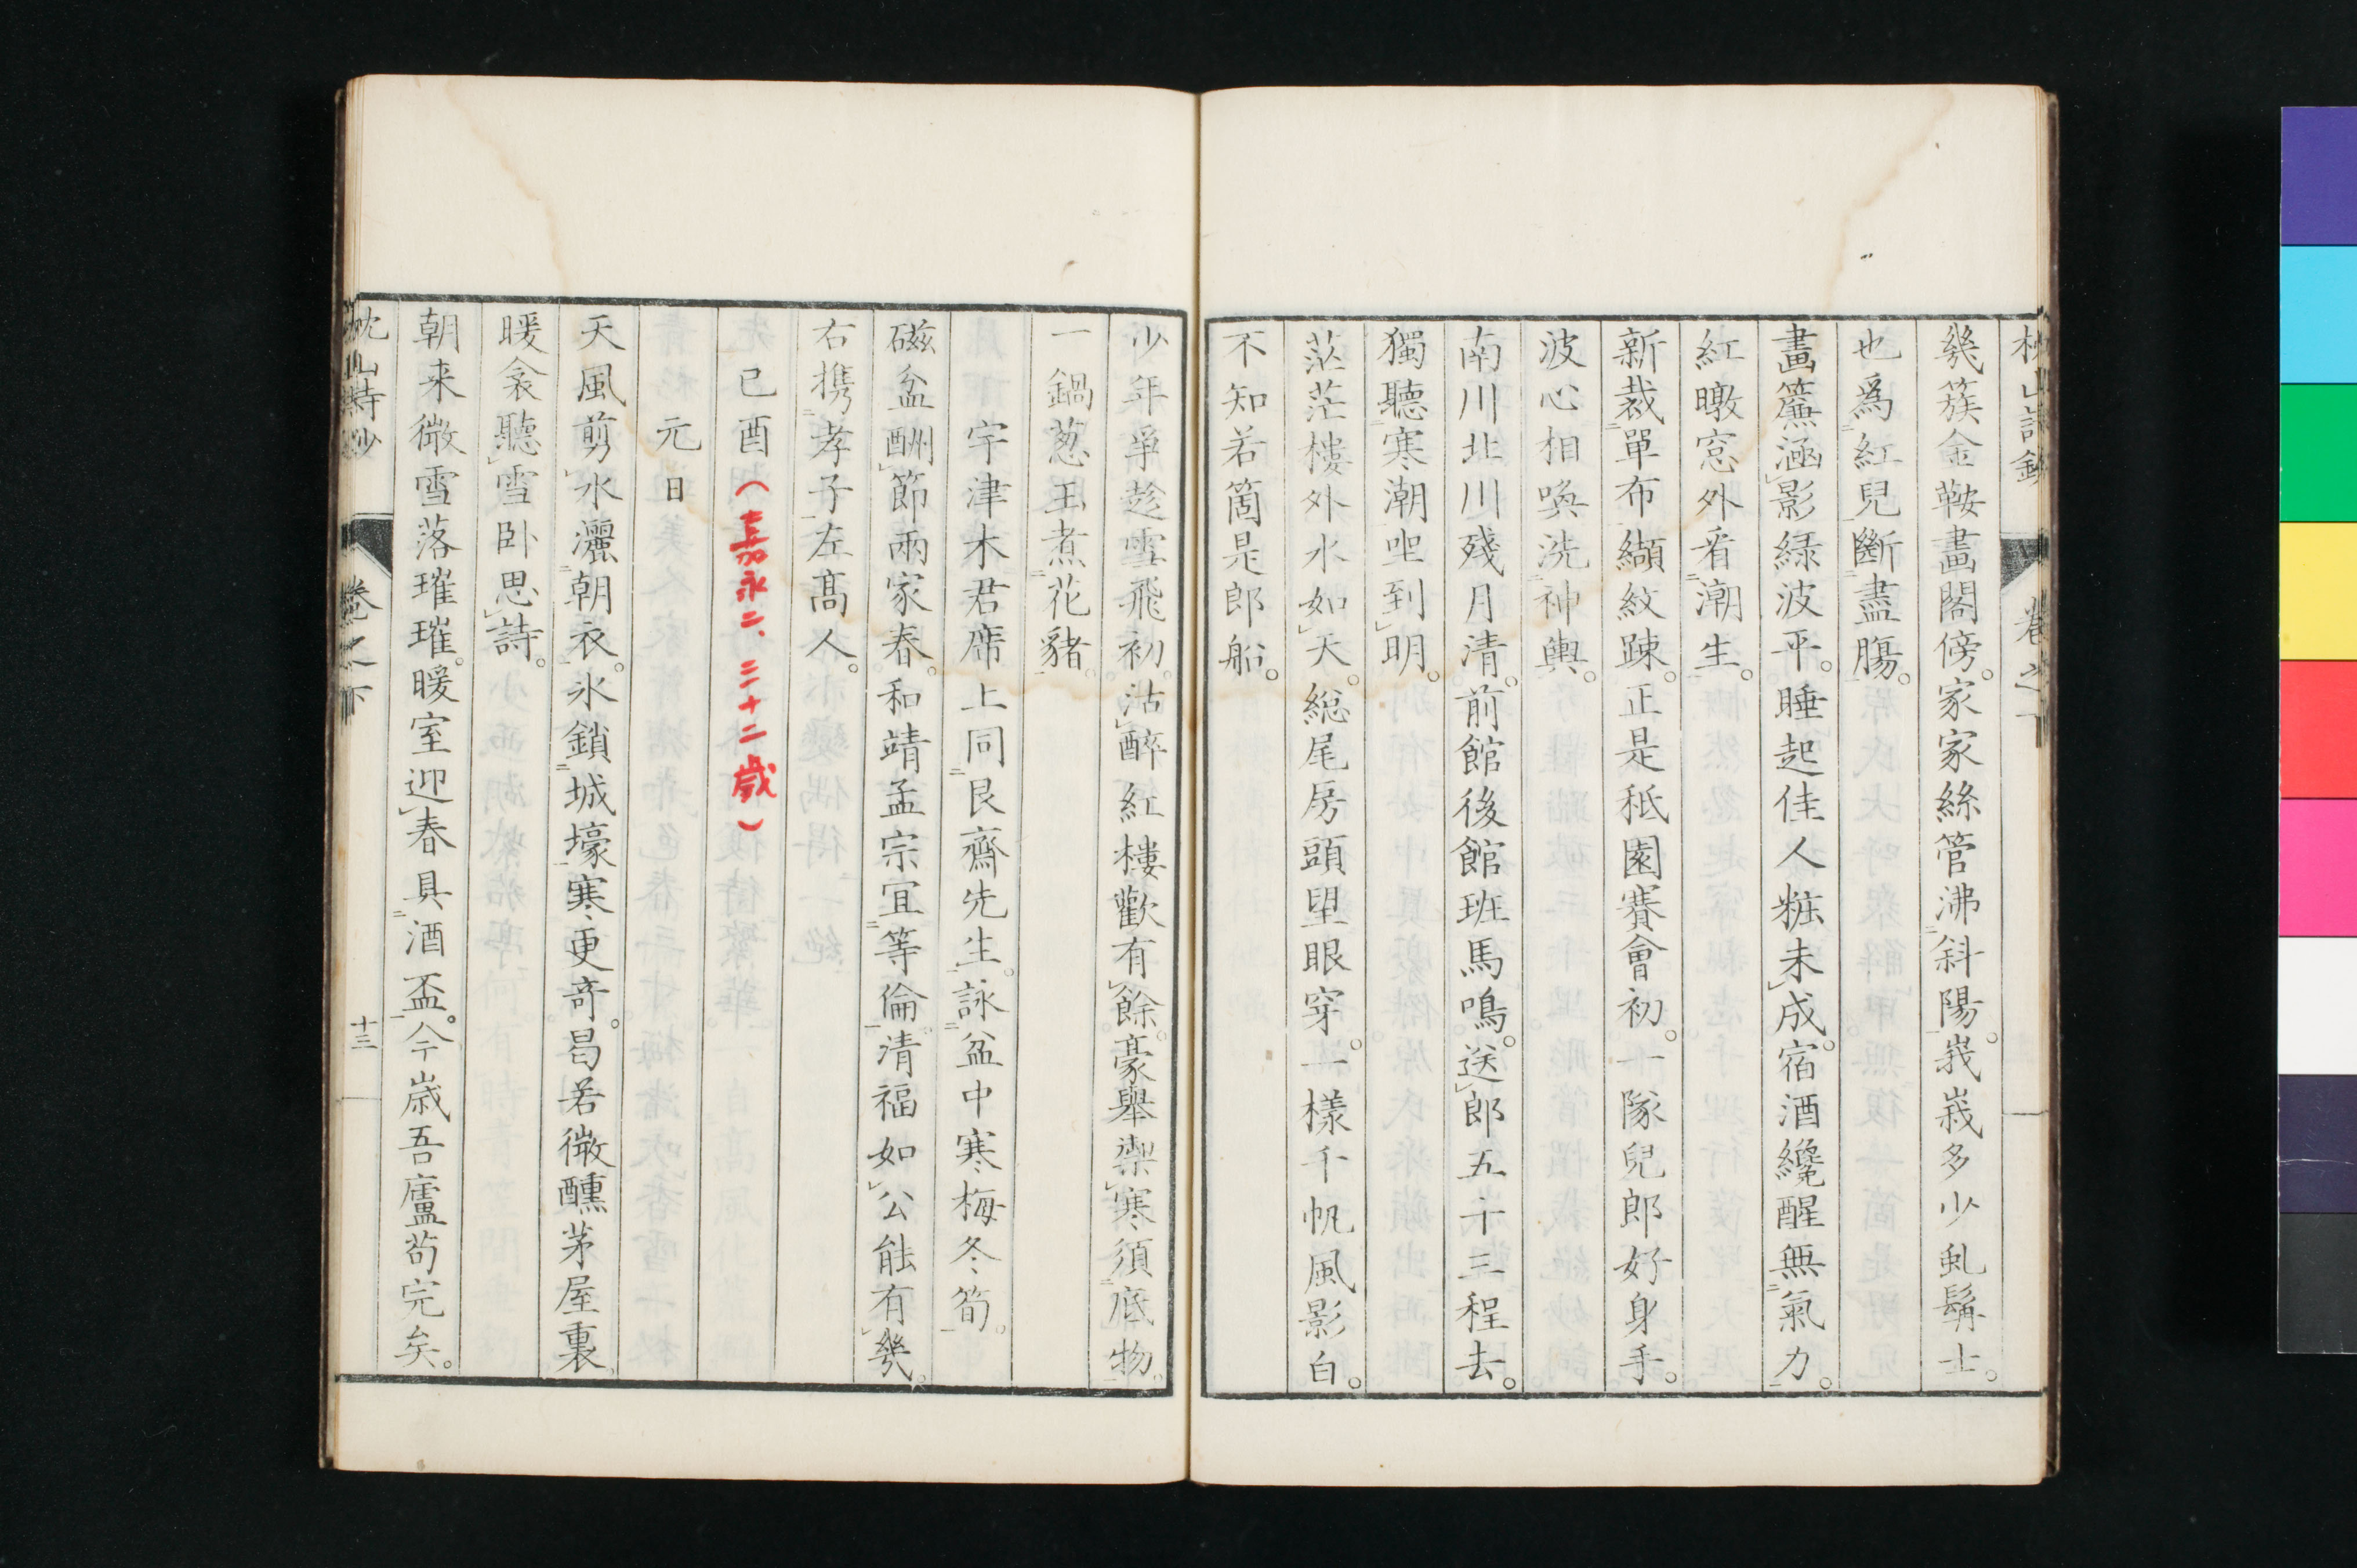 枕山詩鈔 卷之下
幾簇金鞍畫閣傍。家家絲管沸斜陽。峩峩多少虬鬚士。
也爲紅兒斷盡膓。
畫簾涵影緑波平。睡起佳人粧未成。宿酒纔醒無氣力。
紅暾窓外看潮生。
新裁單布纈紋踈。正是秖園賽會初。一隊兒郎好身手。
波心相喚洗神輿。
南川北川殘月清。前館後館班馬鳴。送郎五十三程去。
獨聽寒潮唑到明。
茫茫樓外水如天。総尾房頭望眼穿。一樣千帆風影白。
不知若箇是郎船。
少年爭趁雪飛初。沽醉紅樓歡有餘。豪舉禦寒須底物。
一鍋葱玉煮花豬。
宇津木君席上同艮齋先生。詠盆中寒梅冬筍。
磁盆酬節兩家春。和靖孟宗宜等倫。清福如公能有幾。
右携孝子左髙人。
己酉（嘉永二、三十二歳）
元日
天風剪水灑朝衣。氷鎖城壕寒更奇。曷若微醺茅屋裏。
暖衾聽雪卧思詩。
朝来微雪落璀璀。暖室迎春具酒盃。今歳吾廬苟完矣。
枕山詩鈔 卷之下 十三